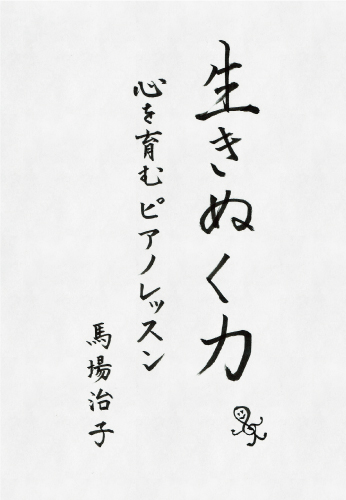 生きぬく力
心を育むピアノレッスン
馬場治子